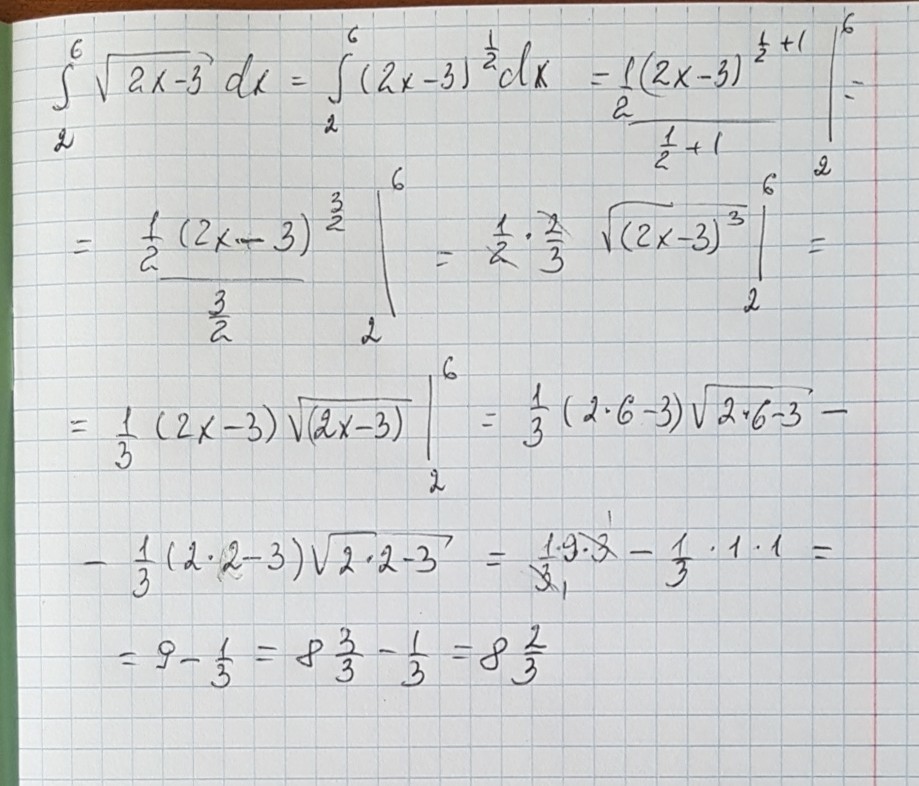 ∫₂⁶ √(2x-3) dx = ∫₂⁶ (2x-3)^(1/2) dx = (1/2 (2x-3)^(1/2 + 1))/(1/2 + 1) |₂⁶ =
= (1/2 (2x-3)^(3/2))/(3/2) |₂⁶ = 1/2 · 2/3 √((2x-3)³) |₂⁶ =
= 1/3 (2x-3) √((2x-3)) |₂⁶ = 1/3 (2·6-3) √(2·6-3) -
- 1/3 (2·2-3) √(2·2-3) = 1/3 · 9 · 3 - 1/3 · 1 · 1 =
= 9 - 1/3 = 8 3/3 - 1/3 = 8 2/3